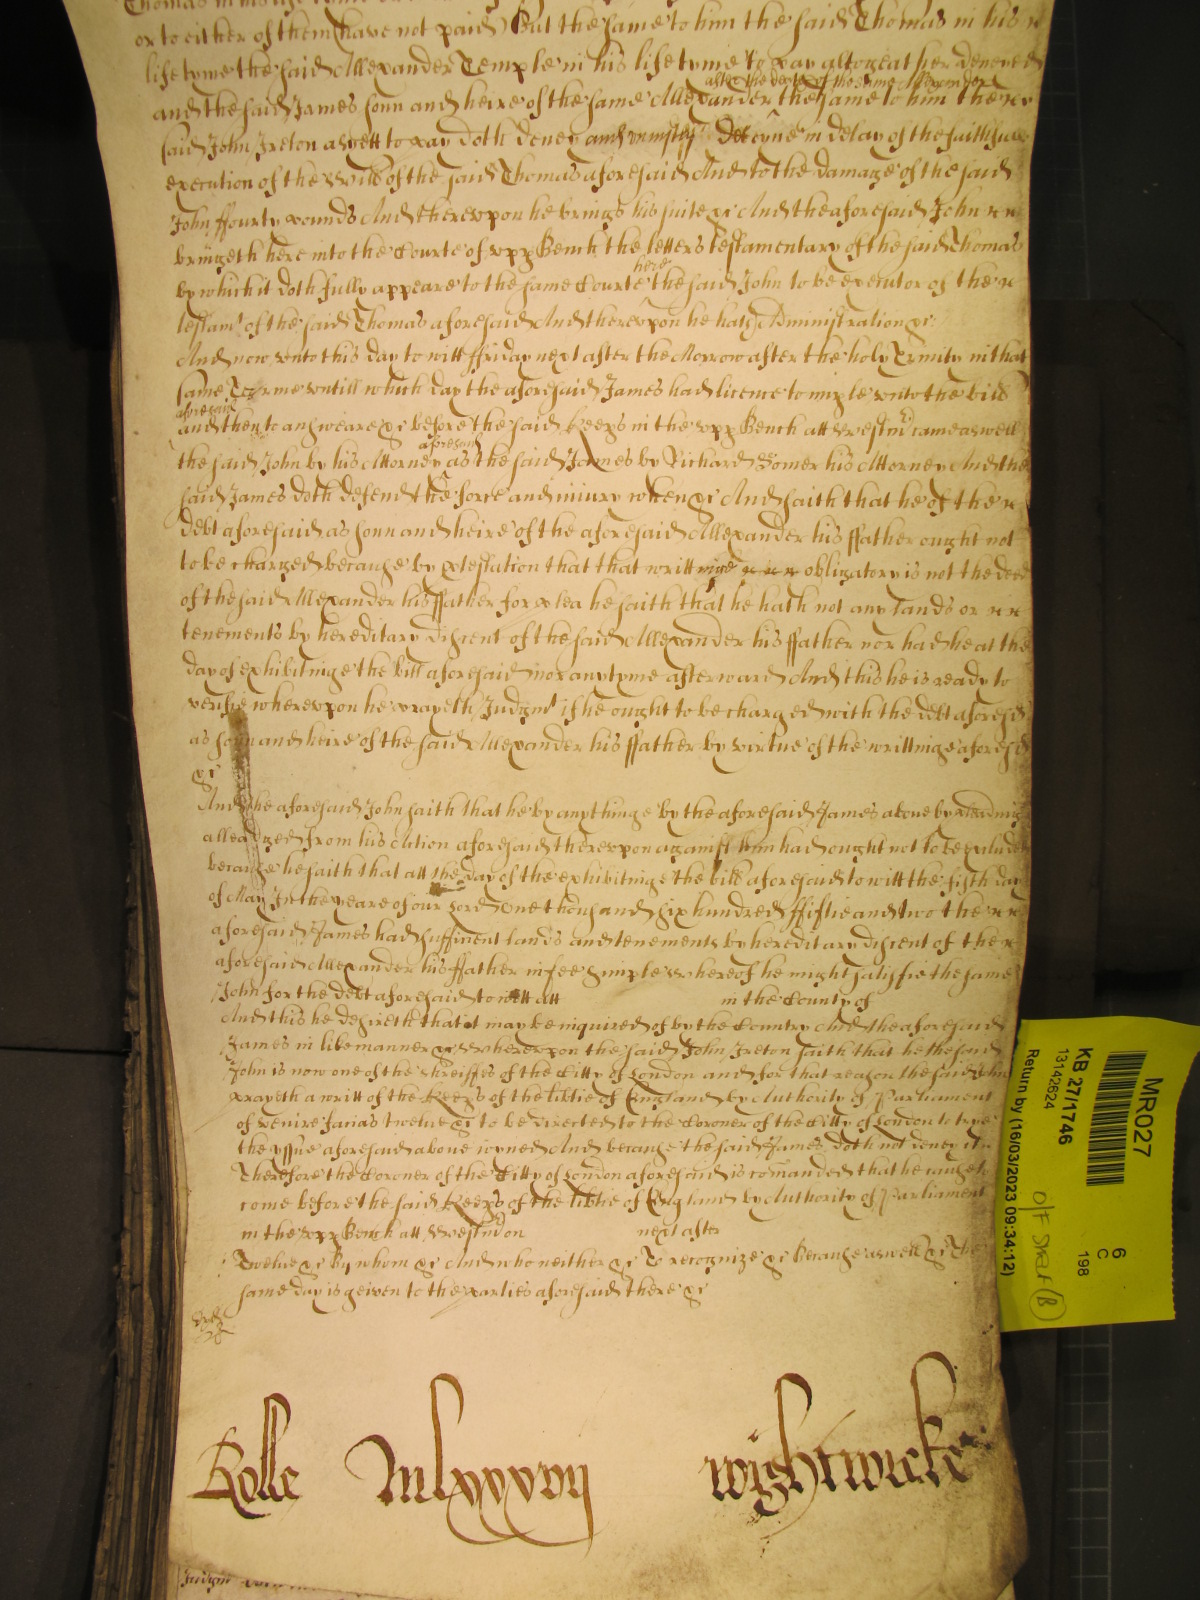 or to either of them have not paid) But the same to him the said Thomas in his
life tyme the said Allexander Temple in his life tyme to pay altogeather denyed
after the death of the same Allexander
and the said James sonn and heire of the same Allexander the same to him the
said John Ireton as yett to pay doth deney and Deteyne in delay of the faithfull
execution of the Will of the said Thomas aforesaid And to the damage of the said
John ffourty pounds And therevpon he brings his suite &c And the aforesaid John
bringeth here into the Courte of vpp Bench the letters testamentary of the said Thomas
here
by which it doth fully appeare to the same Courte the said John to be executor of the
testamt of the said Thomas aforesaid And therevpon he hath Administration &c
And now vnto this day to witt ffriday next after the Morrow after the holy Trinity in that
same Terme vntill which day the aforesaid James had licence to imple vnto the bill
aforesaid
and then to answeare &c before the said Keeps in the vpp Bench att Westmr came aswell
aforesaid
the said John by his Attorney as the said James by Richard Homer his Attorney And the
said James doth defend the force and iniury when &c And saith that he of the
debt aforesaid as sonn and heire of the aforesaid Allexander his ffather ought not
to be charged because by ptestation that that writt obligatory is not the deed
of the said Allexander his ffather for plea he saith that he hath not any lands or
tenements by hereditary discent of the said Allexander his ffather nor had he at the
day of exhibitinge the bill aforesaid nor any tyme afterward And this he is ready to
verifie wherevpon he prayeth Judgmt if he ought to be charged with the debt aforesd
as sonn and heire of the said Allexander his ffather by virtue of the writtinge aforesd
&c
And the aforesaid John saith that he by any thinge by the aforesaid James above by
alleadged from his Action aforesaid therevpon against him had ought not to be excluded
because he saith that att the day of the exhibitinge the bill aforesaid to witt the fifth day
of May In the yeare of our Lord One thousand Six hundred ffiftie and two the
aforesaid James had sufficient lands and tenements by hereditary discent of the
aforesaid Allexander his ffather in fee simple whereof he might satisfie the same
John for the debt aforesaid to witt att in the County of
And this he desireth that it may be inquired of by the Country And the aforesaid
James in like manner &c Wherevpon the said John Ireton saith that he the said
John is now one of the shreiffes of the Citty of London and for that reason the said John
prayeth a writt of the Keeps of the libtie of England by Authority of Parliament
of venire facias twelue &c to be directed to the Coroner of the Citty of London to trye
the yssue aforesaid above ioyned And because the said James doth not deney it
Therefore the Coroner of the Citty of London aforesaid is comanded that he cause to
come before the said Keeps of the libtie of England by Authority of Parliament
in the vpp Bench att Westmr on next after
Twelue &c By whom &c And who neither &c To recognize &c Because aswell &c The
same day is geiven to the parties aforesaid there &c
Rolle Mlxxxvij wightwicke
MR027
KB 27/1746
13142624
6
C
198
O/F Sheet (B)
Return by (16/03/2023 09:34:12)